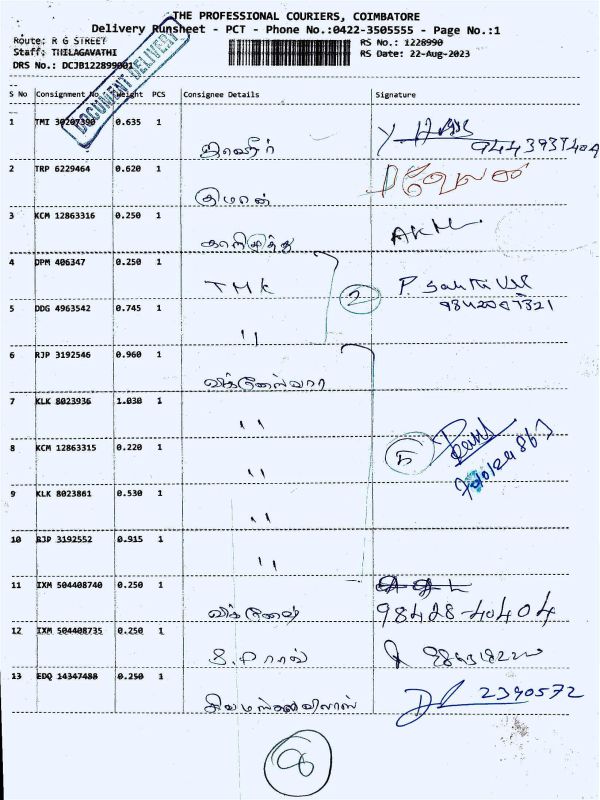 THE PROFESSIONAL COURIERS, COIMBATORE
Delivery Runsheet - PCT - Phone No.:0422-3505555 - Page No.:1
Route: R G STREET
RS No.: 1228990
Staff: THILAGAVATHI
RS Date: 22-Aug-2023
DRS No.: DCJB122899001
DOCUMENT DELIVERY
S No Consignment No Weight PCS Consignee Details Signature
1 TMI 30207390 0.635 1
2 TRP 6229464 0.620 1
குமரன்
3 KCM 12863316 0.250 1
AKM
4 DPM 406347 0.250 1
TMK
2
P. Sakthi Vel
5 DDG 4963542 0.745 1
"
6 RJP 3192546 0.960 1
7 KLK 8023936 1.030 1
"
8 KCM 12863315 0.220 1
"
5
9 KLK 8023861 0.530 1
"
10 RJP 3192552 0.915 1
"
11 IXM 504408740 0.250 1
98428-40404
12 IXM 504408735 0.250 1
13 EDQ 14347488 0.250 1
2390572